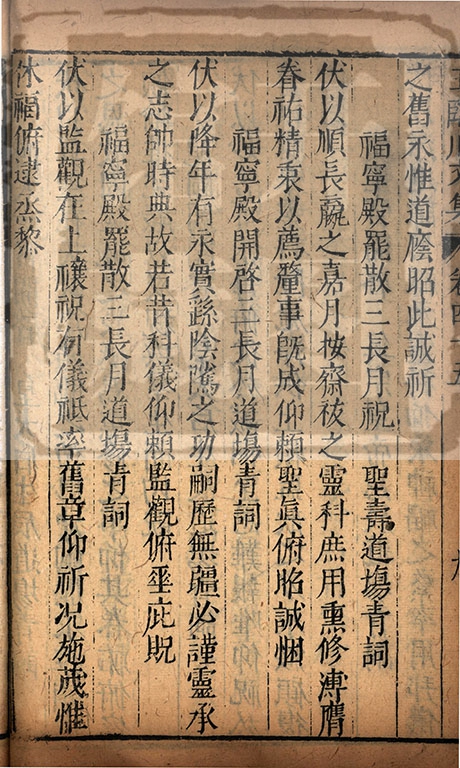 王臨川文集 卷四十五 九
之舊永惟道廕昭此誠祈
福寧殿罷散三長月祝 聖壽道塲青詞
伏以順長嬴之嘉月按齋祓之靈科庶用熏修溥膺
眷祐精衷以薦釐事旣成仰頼聖眞俯昭誠悃
福寧殿開啓三長月道塲青詞
伏以降年有永實繇陰隲之功嗣歷無疆必謹靈承
之志帥時典故若昔科儀仰頼監觀俯垂庇貺
福寧殿罷散三長月道塲青詞
伏以監觀在上禳祝有儀祗率舊章仰祈况施茂惟
休福俯逮烝黎